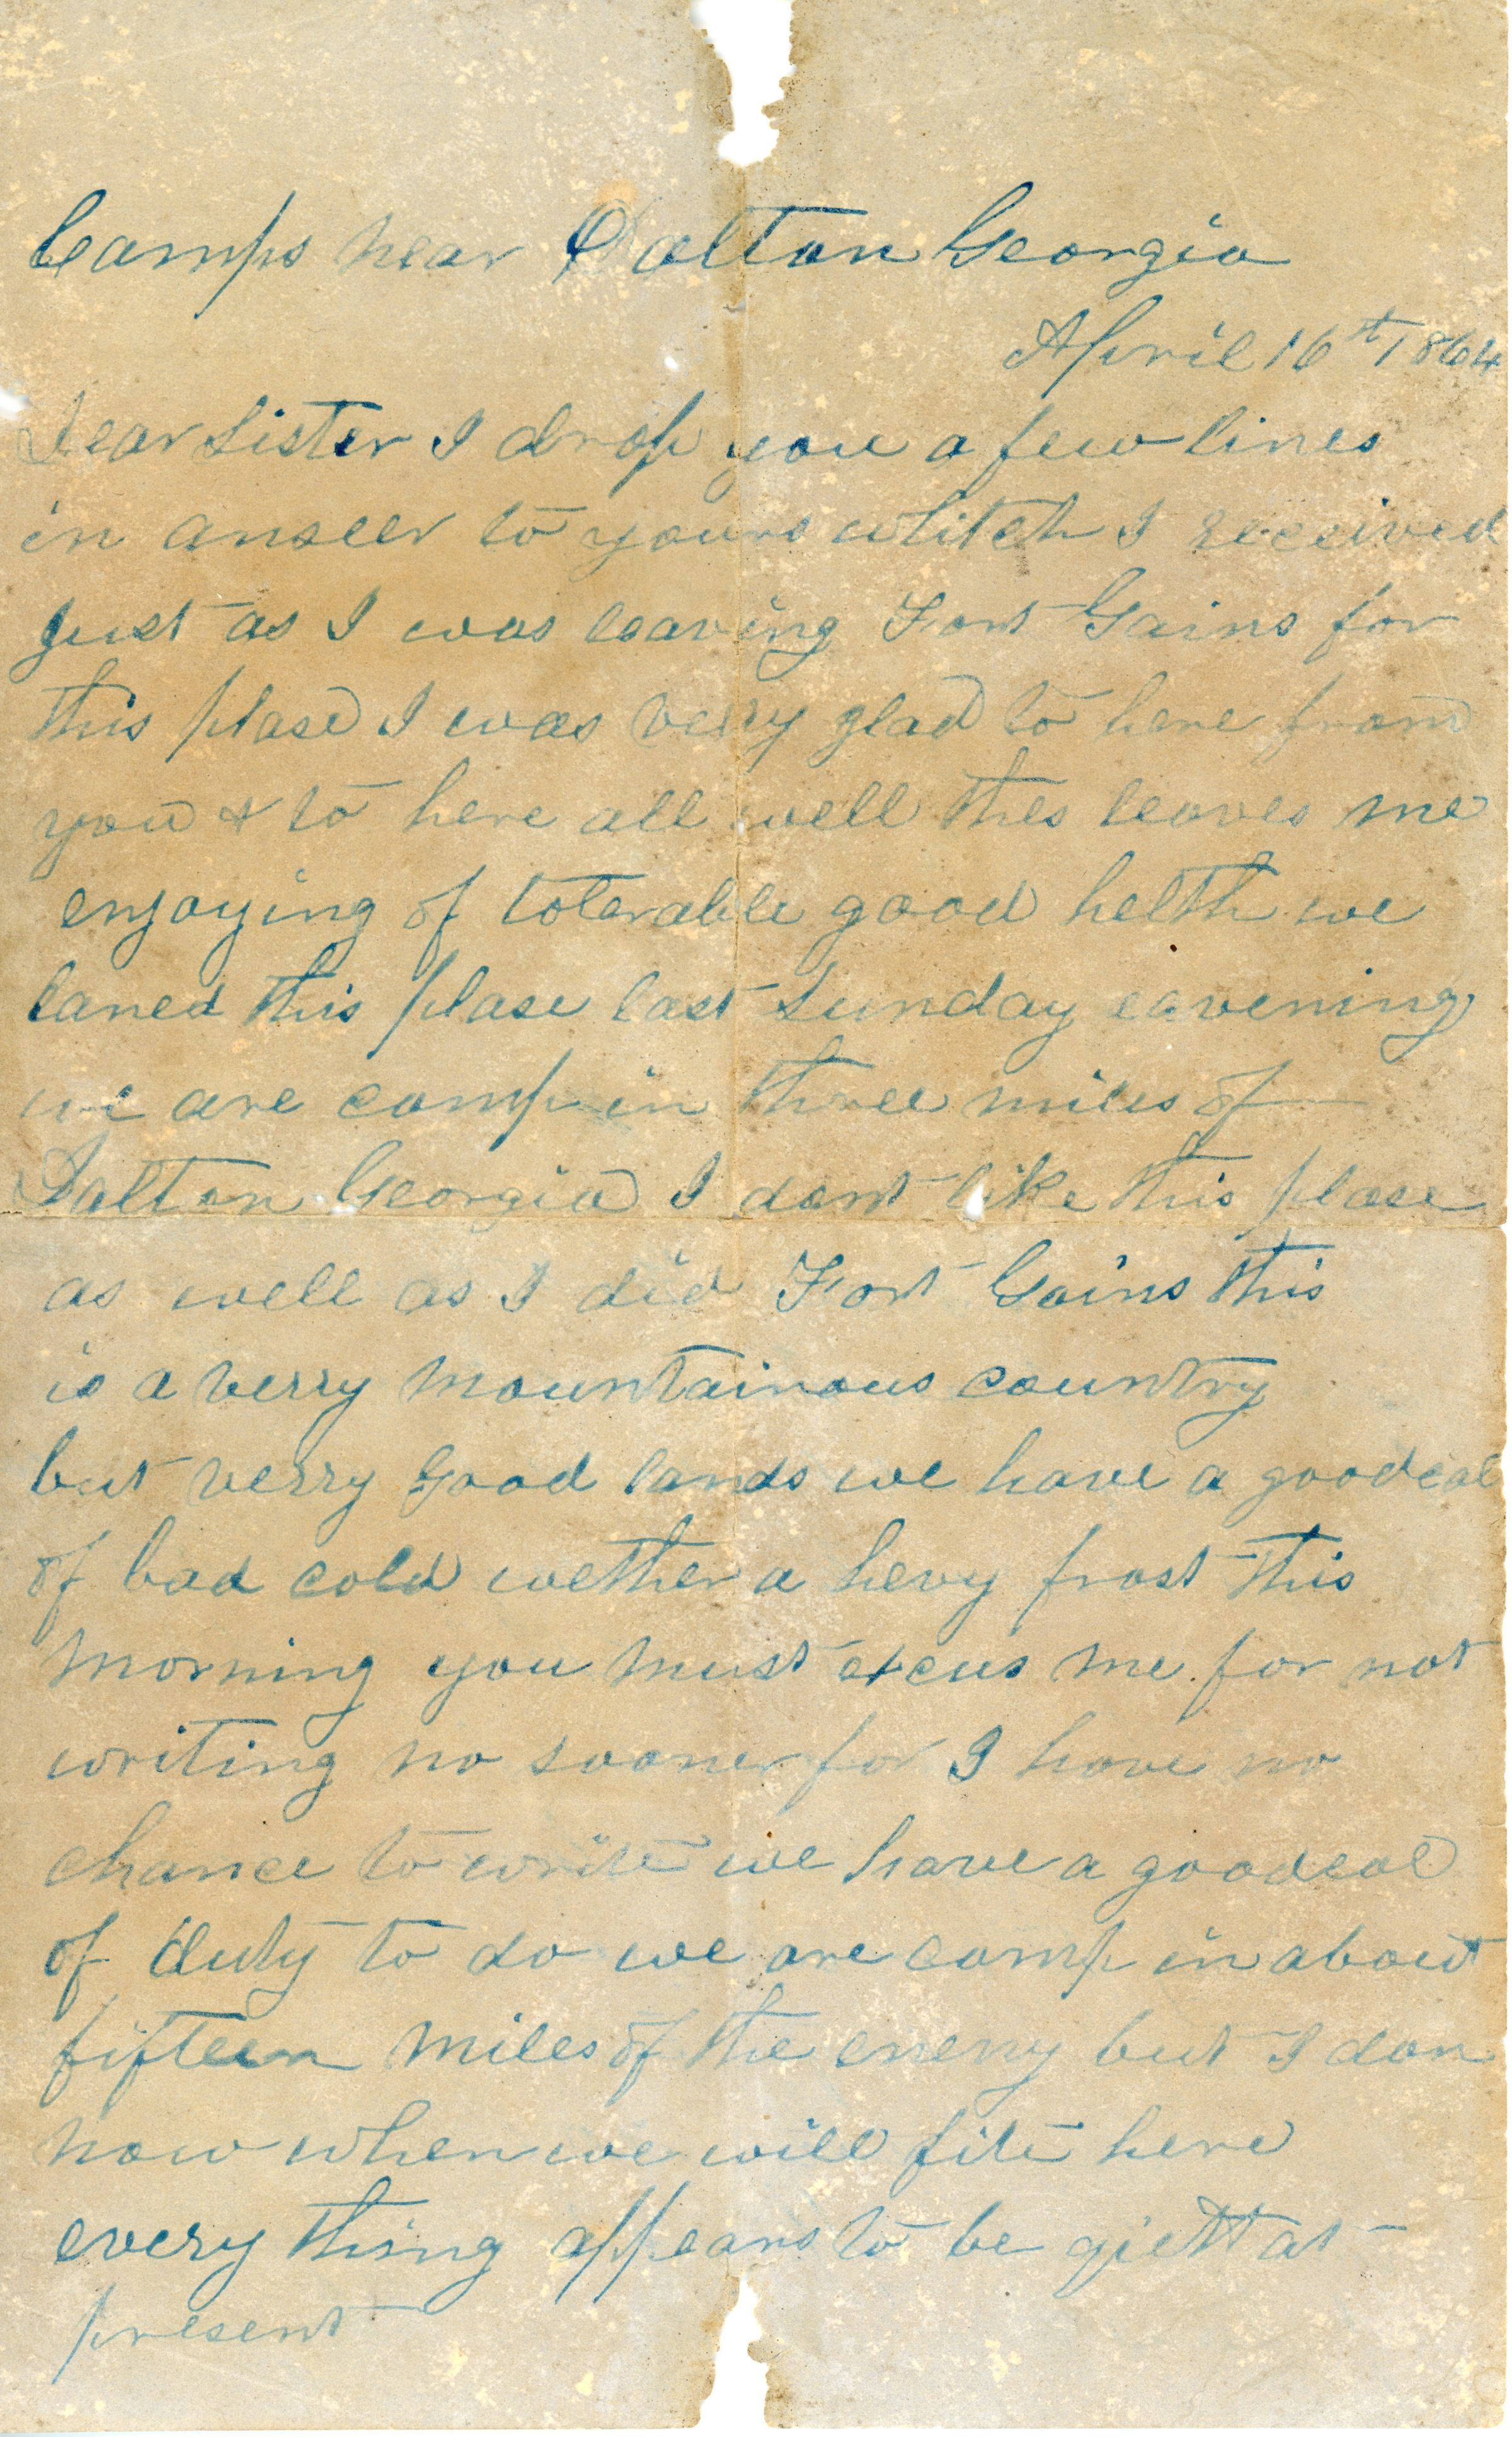 Camps near Dalton Georgia
April 16th 1864
Dear Sister I drop you a few lines
in anseer to yours whitch I received
just as I was leaving Fort Gains for
this plase I was very glad to here from
you & to here all well thes leaves me
enjoying of tolerable good helth we
laned this plase last Sunday eavening
we are camp in three miles of
Dalton Georgia I dont like this plase
as well as I did Fort Gains this
is a verry mountainous country
but verry good lands we have a goodeal
of bad cold wether a hevy frost this
morning you must excus me for not
writing no sooner for I have no
chance to write we have a goodeal
of duty to do we are camp in about
fifteen miles of the enemy but I don
now when we will fite here
every thing appears to be qiett at
present